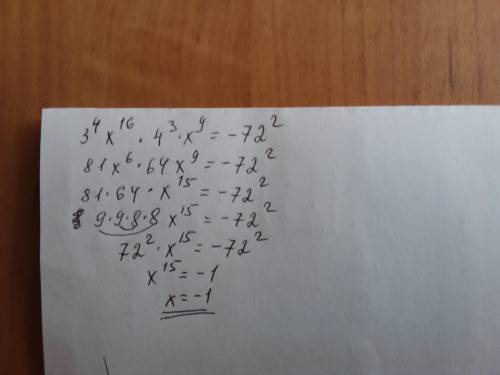 3⁴x¹⁶ · 4³ · x⁹ = -72²
81x⁶ · 64x⁹ = -72²
81 · 64 · x¹⁵ = -72²
9·9·8·8 x¹⁵ = -72²
72² · x¹⁵ = -72²
x¹⁵ = -1
x = -1